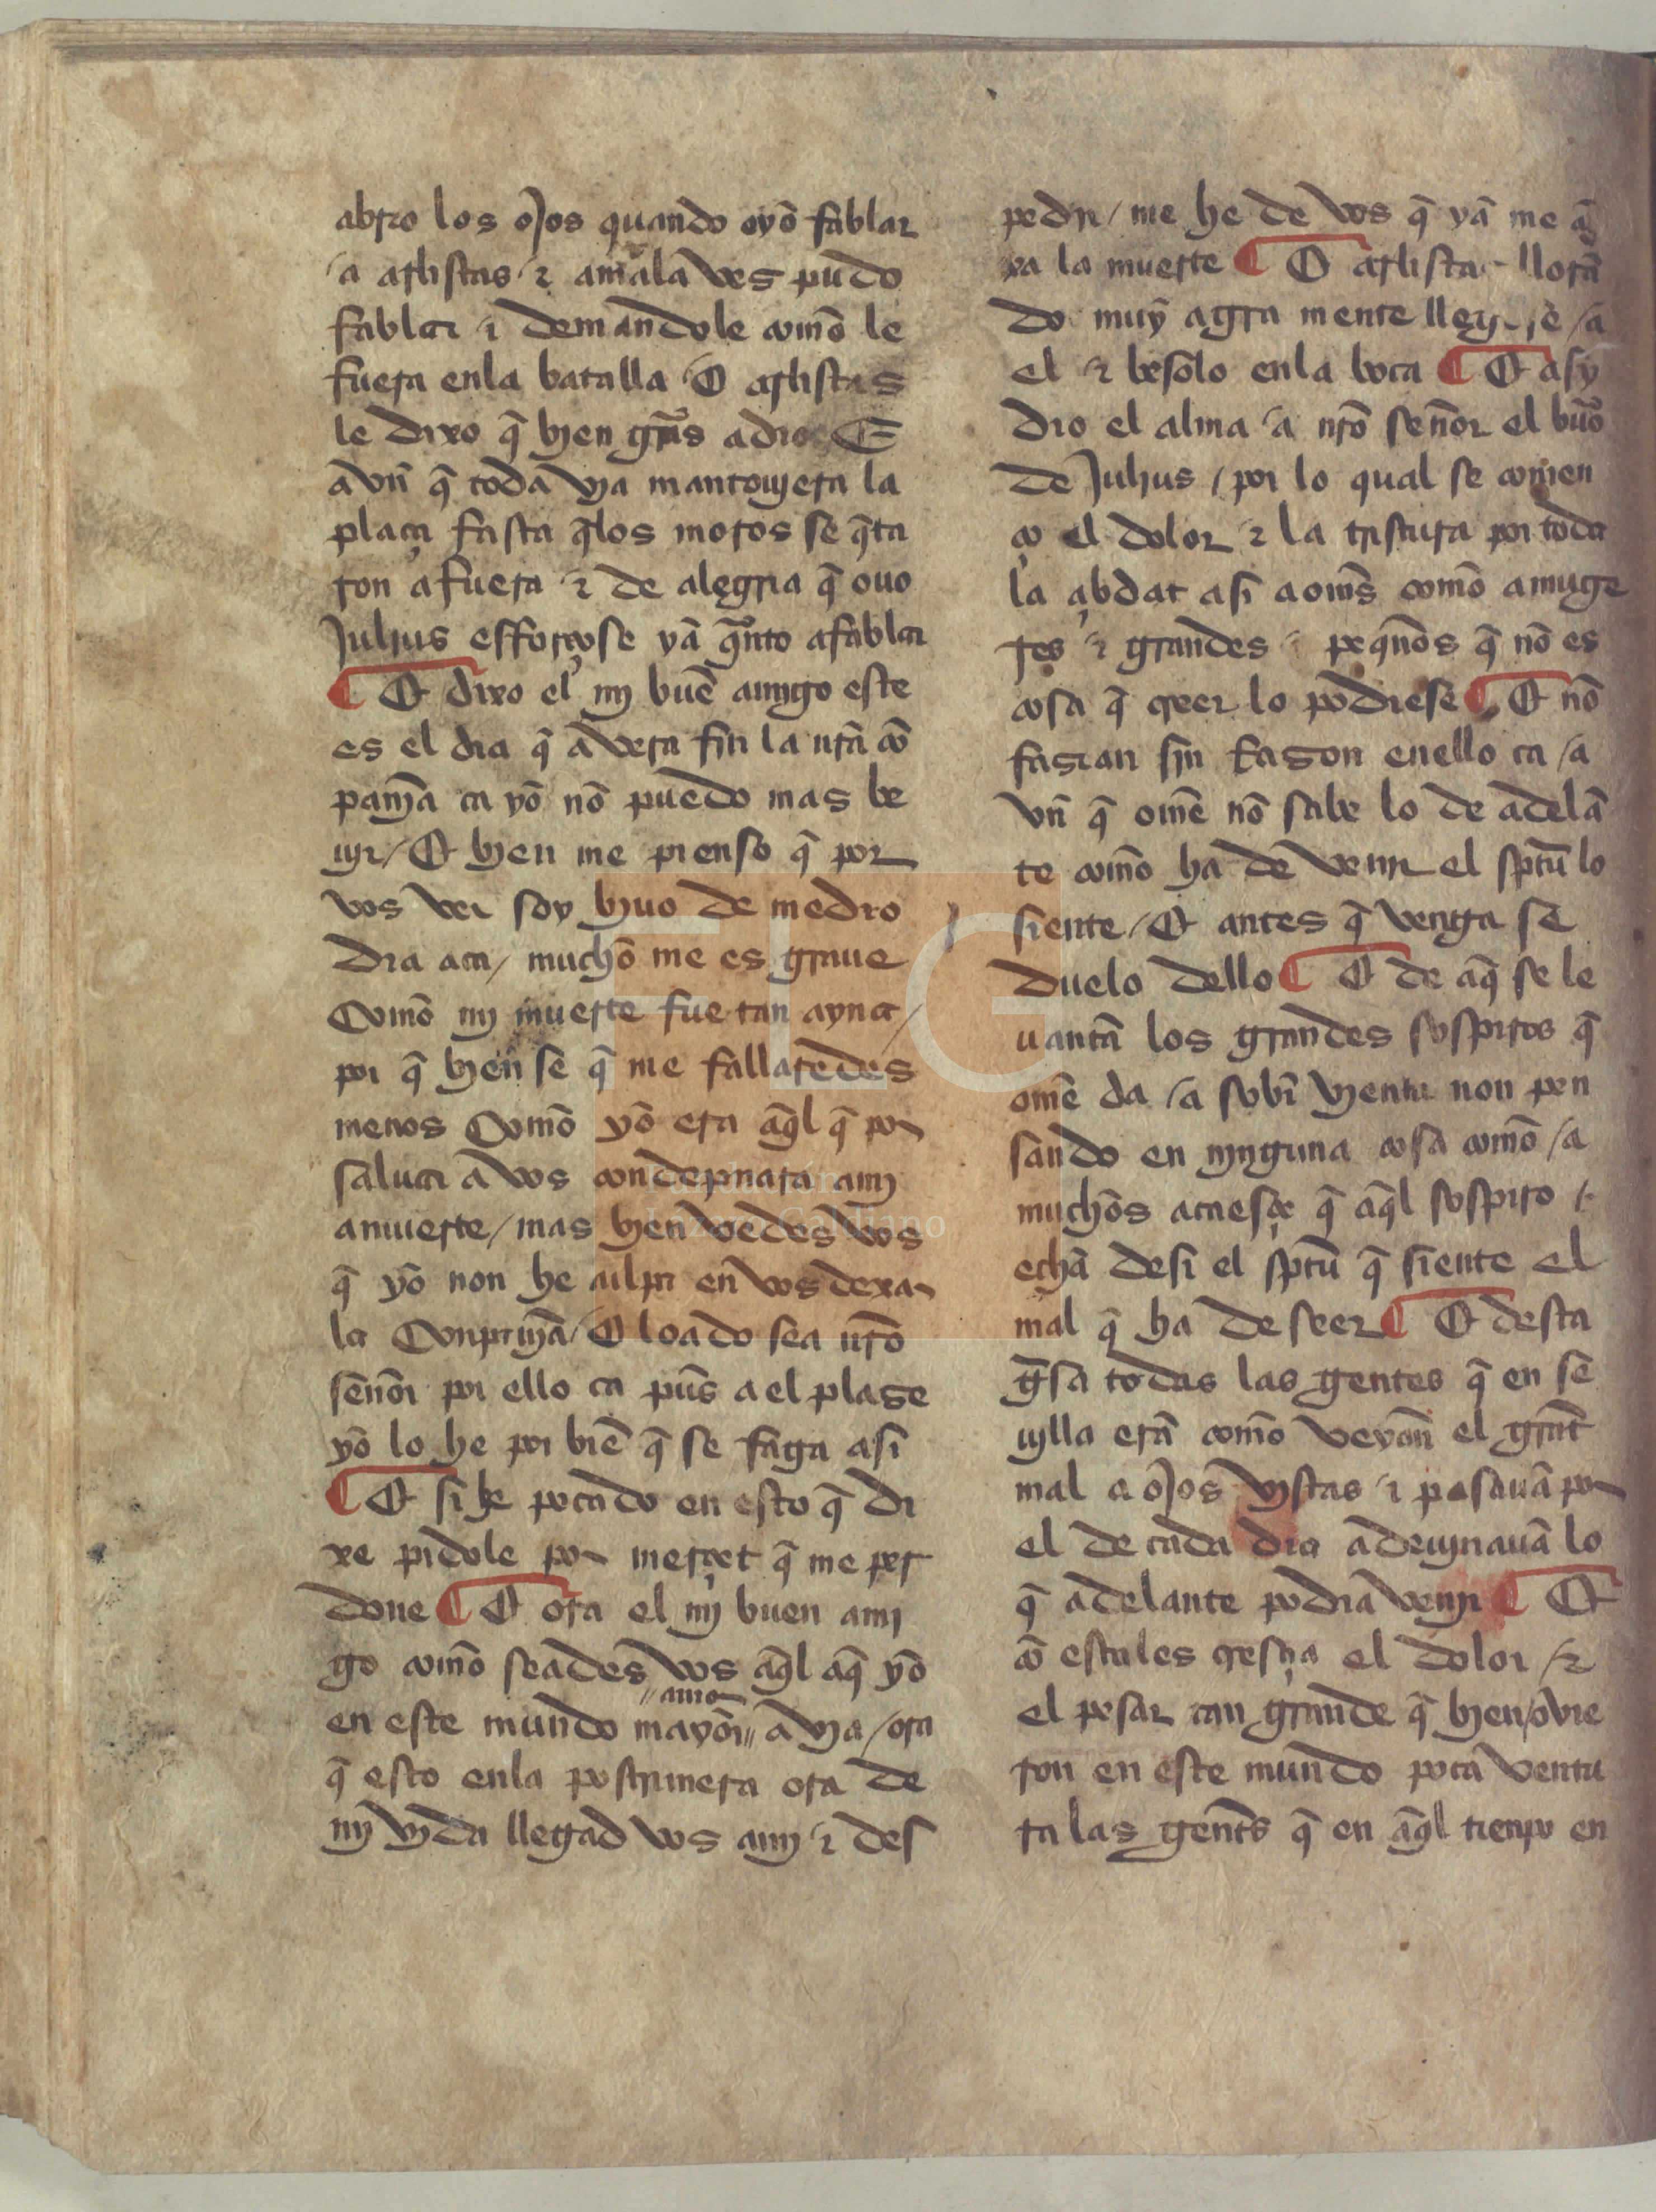 abrio los ojos quando oyo᷉ fablar
/a arlistas ⁊ amala ves pudo
fablar ⁊ demandole com̄o le
fuera enla batalla / E arlistas
le dixo q̄ bien gr̃as adios E
avn̄ q̄ toda via mantouiera la
plaça fasta q̄los moros se q̄ta
ron afuera ⁊ de alegria q̄ ouo
Julius efforçose yā q̄nto afablar
¶ E dixo el mj buē amigo este
es el dia q̄ avera fin la nr̄a cō
pam̄a ca yō nō puedo mas be
uir / E bien me pienso q̄ por
vos ver soy biuo de medio
dia aca / muchō me es graue
Com̄o mj muerte fue tan ayna /
por q̄ bien se q̄ me fallaredes
menos Com̄o yō era aq̄l q̄ por
saluar a vos condepnara amj
amuerte / mas bien vedes vos
q̄ yō non he culpa en vos dexar
la Conpam̄a / E loado sea nr̄o
sēnor por ello ca pūs a el plase
yō lo he por biē q̄ se faga asi
¶ E si he pecado en esto q̄ di
xe pidole por merçet q̄ me per
done ¶ E ora el mj buen ami
go com̄o seades vos aq̄l aq̄ yō
amor
en este mundo mayōr // avia / ora
q̄ esto enla postrimera ora de
mj vida llegad vos amj ⁊ des
pedir / me he de vos q̄ yā me aq̄
xa la muerte ¶ E arlistas llorā
do muȳ agra mente llegose /a
el ⁊ besolo enla boca ¶ E asy
dio el alma /a nr̄o sen̄or el buēo
de Julius / por lo qual se comen
ço el dolor ⁊ la tristura por toda
la çibdat asi aom̄s com̄o amuge
res ⁊ grandes ⁊ peq̄nōs q̄ nō es
cosa q̄ creer lo podiese ¶ E nō
fasian sin rason enello ca /a
vn̄ q̄ om̄e nō sabe lo de adelā
te com̄o ha de venir el sp̄tū lo
siente / E antes q̄ venga se
duelo dello ¶ E de aq̄ se le
uantā los grandes sospiros q̄
om̄e da /a sobi viente non pen
sando en ninguna cosa com̄o /a
muchōs acaesçe q̄ aq̄l sospiro
echā desi el sp̄tū q̄ siente el
mal q̄ ha de seer ¶ E desta
gīsa todas las gentes q̄ en se
uilla erā com̄o veyan̄ el grāt
mal a ojos vistas ⁊ pasauā por
el de cada dia adeuinauā lo
q̄ adelante podriā venir ¶ E
cō estales cresçia el dolor / ⁊
el pesar tan grande q̄ bien / ovie
ron en este mundo poca ventu
ra las gent̄s q̄ en aq̄l tienpo en